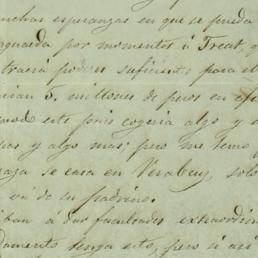 muchas esperanzas en que se pueda
aguarda por momentos á Treat, q
traerá poderes suficient. para el
5. millones de pesos en efe
este pais cogeria algo y e
y algo mas; pero me temo
se casa en Veracruz, solo
vá de su padrino.
iban á dar facultades extraordin
tenga esto, pero si asi